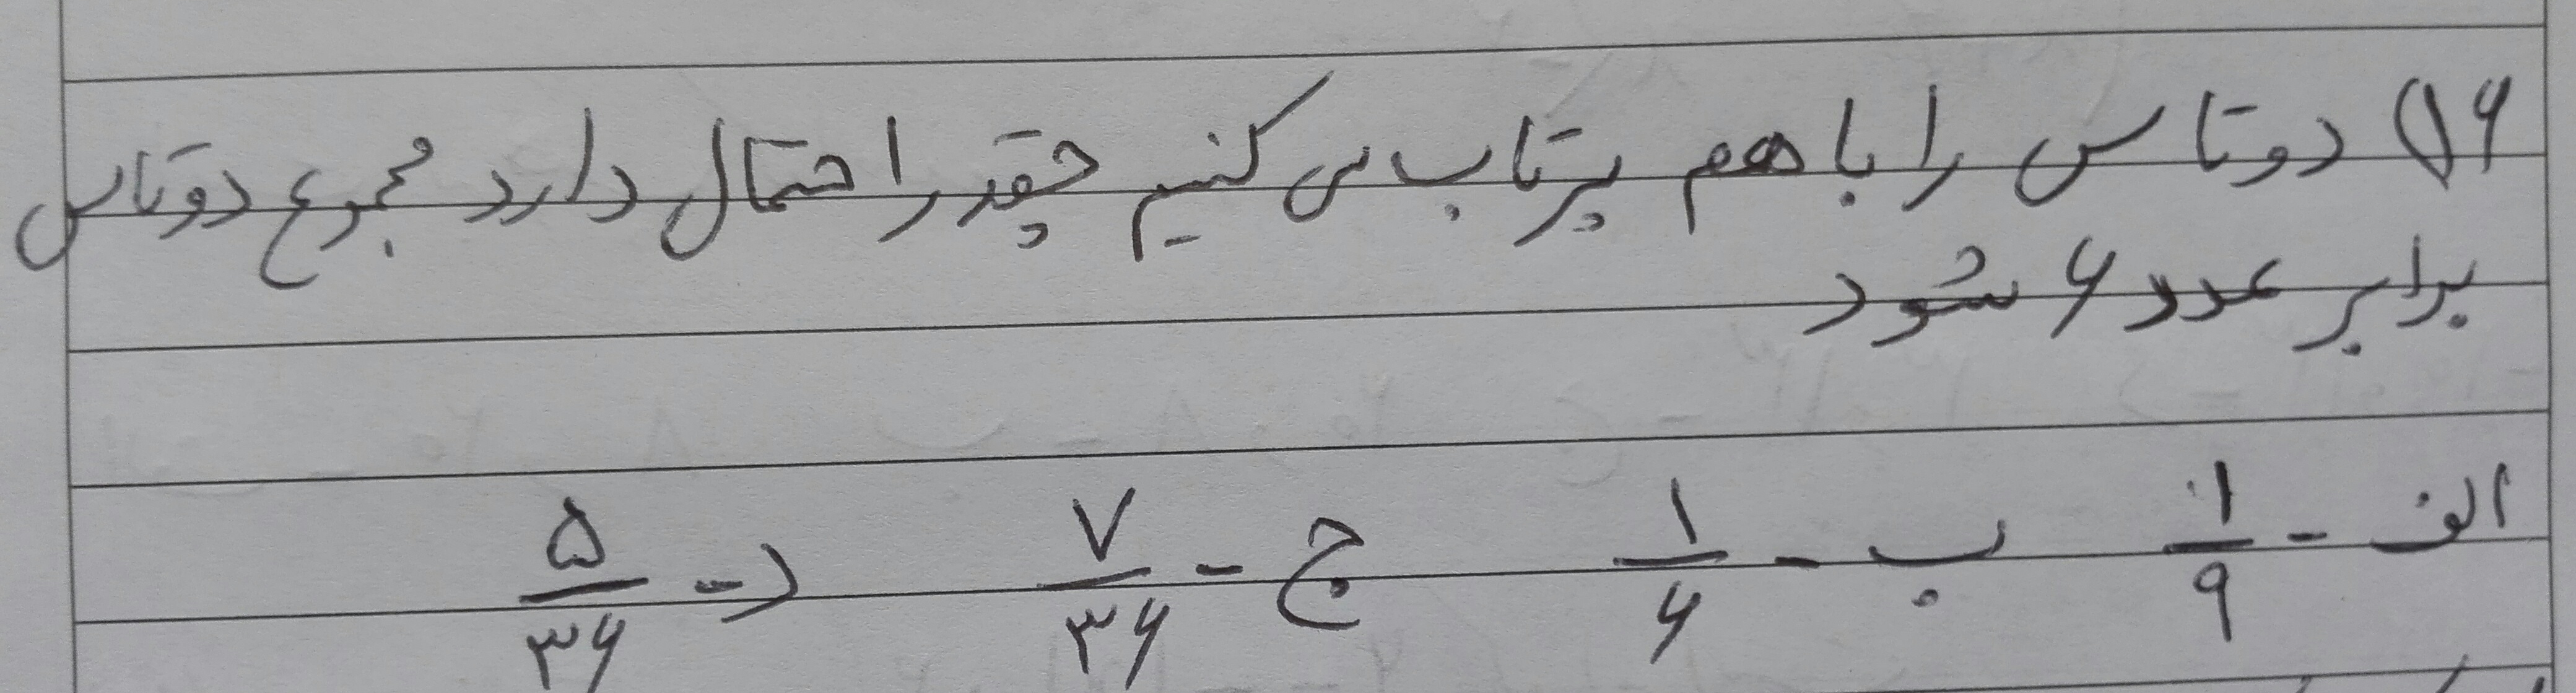 ۱۶) دو تاس را با هم پرتاب می کنیم چقدر احتمال دارد مجموع دو تاس
برابر عدد ۶ شود
الف - ۱/۹ ب - ۱/۶ ج - ۷/۳۶ د - ۵/۳۶